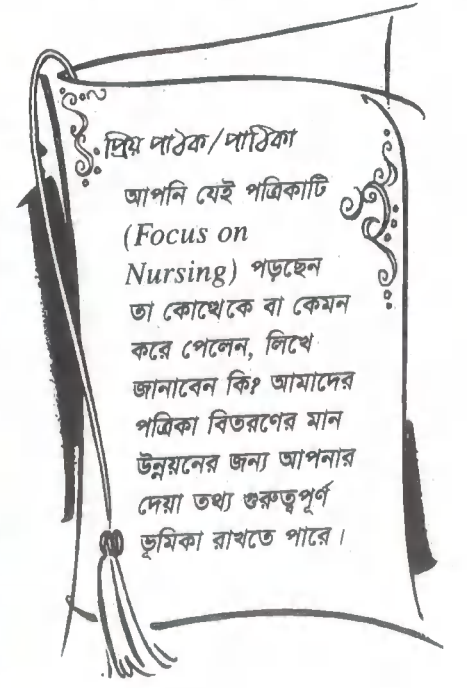 প্রিয় পাঠক/পাঠিকা
আপনি যেই পত্রিকাটি
(Focus on
Nursing) পড়ছেন
তা কোত্থেকে বা কেমন
করে পেলেন, লিখে
জানাবেন কি? আমাদের
পত্রিকা বিতরণের মান
উন্নয়নের জন্য আপনার
দেয়া তথ্য গুরুত্বপূর্ণ
ভূমিকা রাখতে পারে।